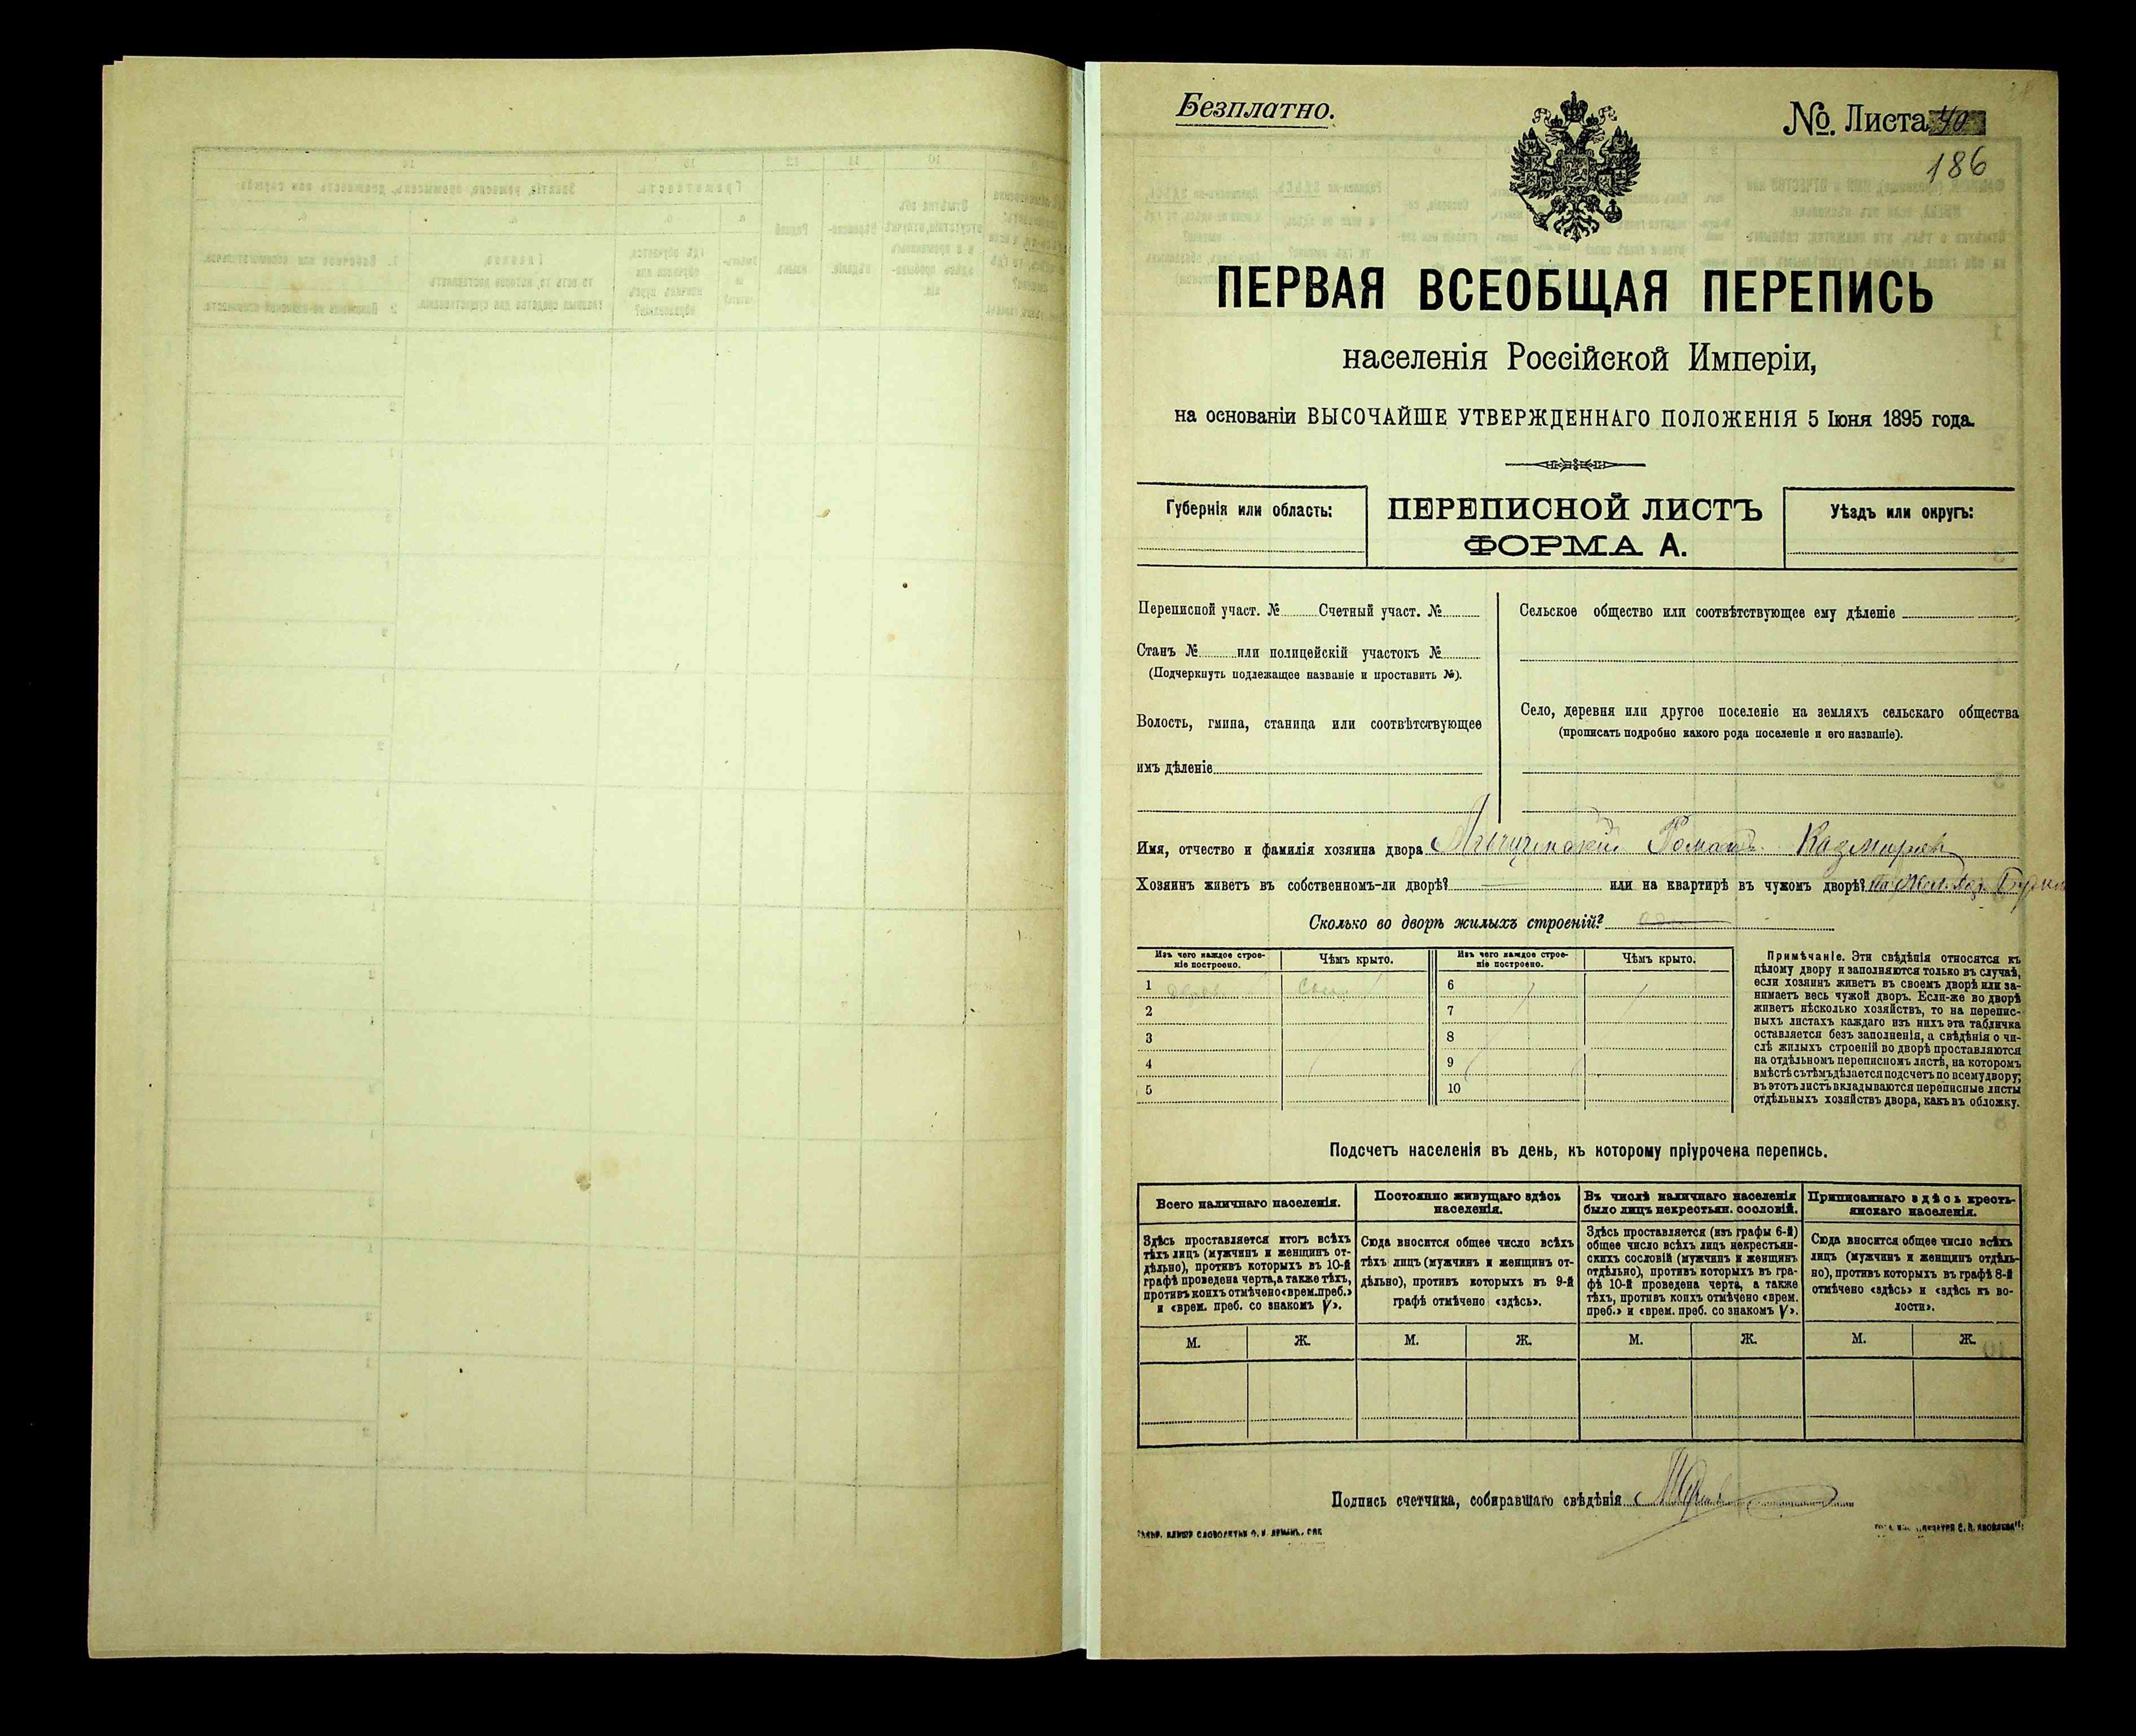 Безплатно.
№. Листа 40
186
ПЕРВАЯ ВСЕОБЩАЯ ПЕРЕПИСЬ
населенія Россійской Имперіи,
на основаніи ВЫСОЧАЙШЕ УТВЕРЖДЕННАГО ПОЛОЖЕНІЯ 5 Іюня 1895 года.
Губернія или область:
ПЕРЕПИСНОЙ ЛИСТЪ
ФОРМА А.
Уѣздъ или округъ:
Переписной участ. № Счетный участ. №
Станъ № или полицейскій участокъ №
(Подчеркнуть подлежащее названіе и проставить №).
Волость, гмина, станица или соотвѣтствующее
имъ дѣленіе
Сельское общество или соотвѣтствующее ему дѣленіе
Село, деревня или другое поселеніе на земляхъ сельскаго общества
(прописать подробно какого рода поселеніе и его названіе).
Имя, отчество и фамилія хозяина двора Романъ Казмировъ
Хозяинъ живетъ въ собственномъ-ли дворѣ? или на квартирѣ въ чужомъ дворѣ?
Сколько во дворѣ жилыхъ строеній?
Изъ чего каждое строе-
ніе построено.
Чѣмъ крыто.
Изъ чего каждое строе-
ніе построено.
Чѣмъ крыто.
1 6
2 7
3 8
4 9
5 10
Примѣчаніе. Эти свѣдѣнія относятся къ
цѣлому двору и заполняются только въ случаѣ,
если хозяинъ живетъ въ своемъ дворѣ или за-
нимаетъ весь чужой дворъ. Если-же во дворѣ
живетъ нѣсколько хозяйствъ, то на перепис-
ныхъ листахъ каждаго изъ нихъ эта табличка
оставляется безъ заполненія, а свѣдѣнія о чи-
слѣ жилыхъ строеній во дворѣ проставляются
на отдѣльномъ переписномъ листѣ, на которомъ
вмѣстѣ съ тѣмъ дѣлается подсчетъ по всему двору;
въ этотъ листъ вкладываются переписные листы
отдѣльныхъ хозяйствъ двора, какъ въ обложку.
Подсчетъ населенія въ день, къ которому пріурочена перепись.
Всего наличнаго населенія.
Здѣсь проставляется итогъ всѣхъ
тѣхъ лицъ (мужчинъ и женщинъ от-
дѣльно), противъ которыхъ въ 10-й
графѣ проведена черта, а также тѣхъ,
противъ коихъ отмѣчено «врем. преб.»
и «врем. преб. со знакомъ V».
Постоянно живущаго здѣсь
населенія.
Сюда вносится общее число всѣхъ
тѣхъ лицъ (мужчинъ и женщинъ от-
дѣльно), противъ которыхъ въ 9-й
графѣ отмѣчено «здѣсь».
Въ числѣ наличнаго населенія
было лицъ некрестьян. сословій.
Здѣсь проставляется (изъ графы 6-й)
общее число всѣхъ лицъ некрестьян-
скихъ сословій (мужчинъ и женщинъ
отдѣльно), противъ которыхъ въ гра-
фѣ 10-й проведена черта, а также
тѣхъ, противъ коихъ отмѣчено «врем.
преб.» и «врем. преб. со знакомъ V».
Приписаннаго здѣсь кресть-
янскаго населенія.
Сюда вносится общее число всѣхъ
лицъ (мужчинъ и женщинъ отдѣль-
но), противъ которыхъ въ графѣ 8-й
отмѣчено «здѣсь» и «здѣсь къ во-
лости».
М. Ж. М. Ж. М. Ж. М. Ж.
Подпись счетчика, собиравшаго свѣдѣнія